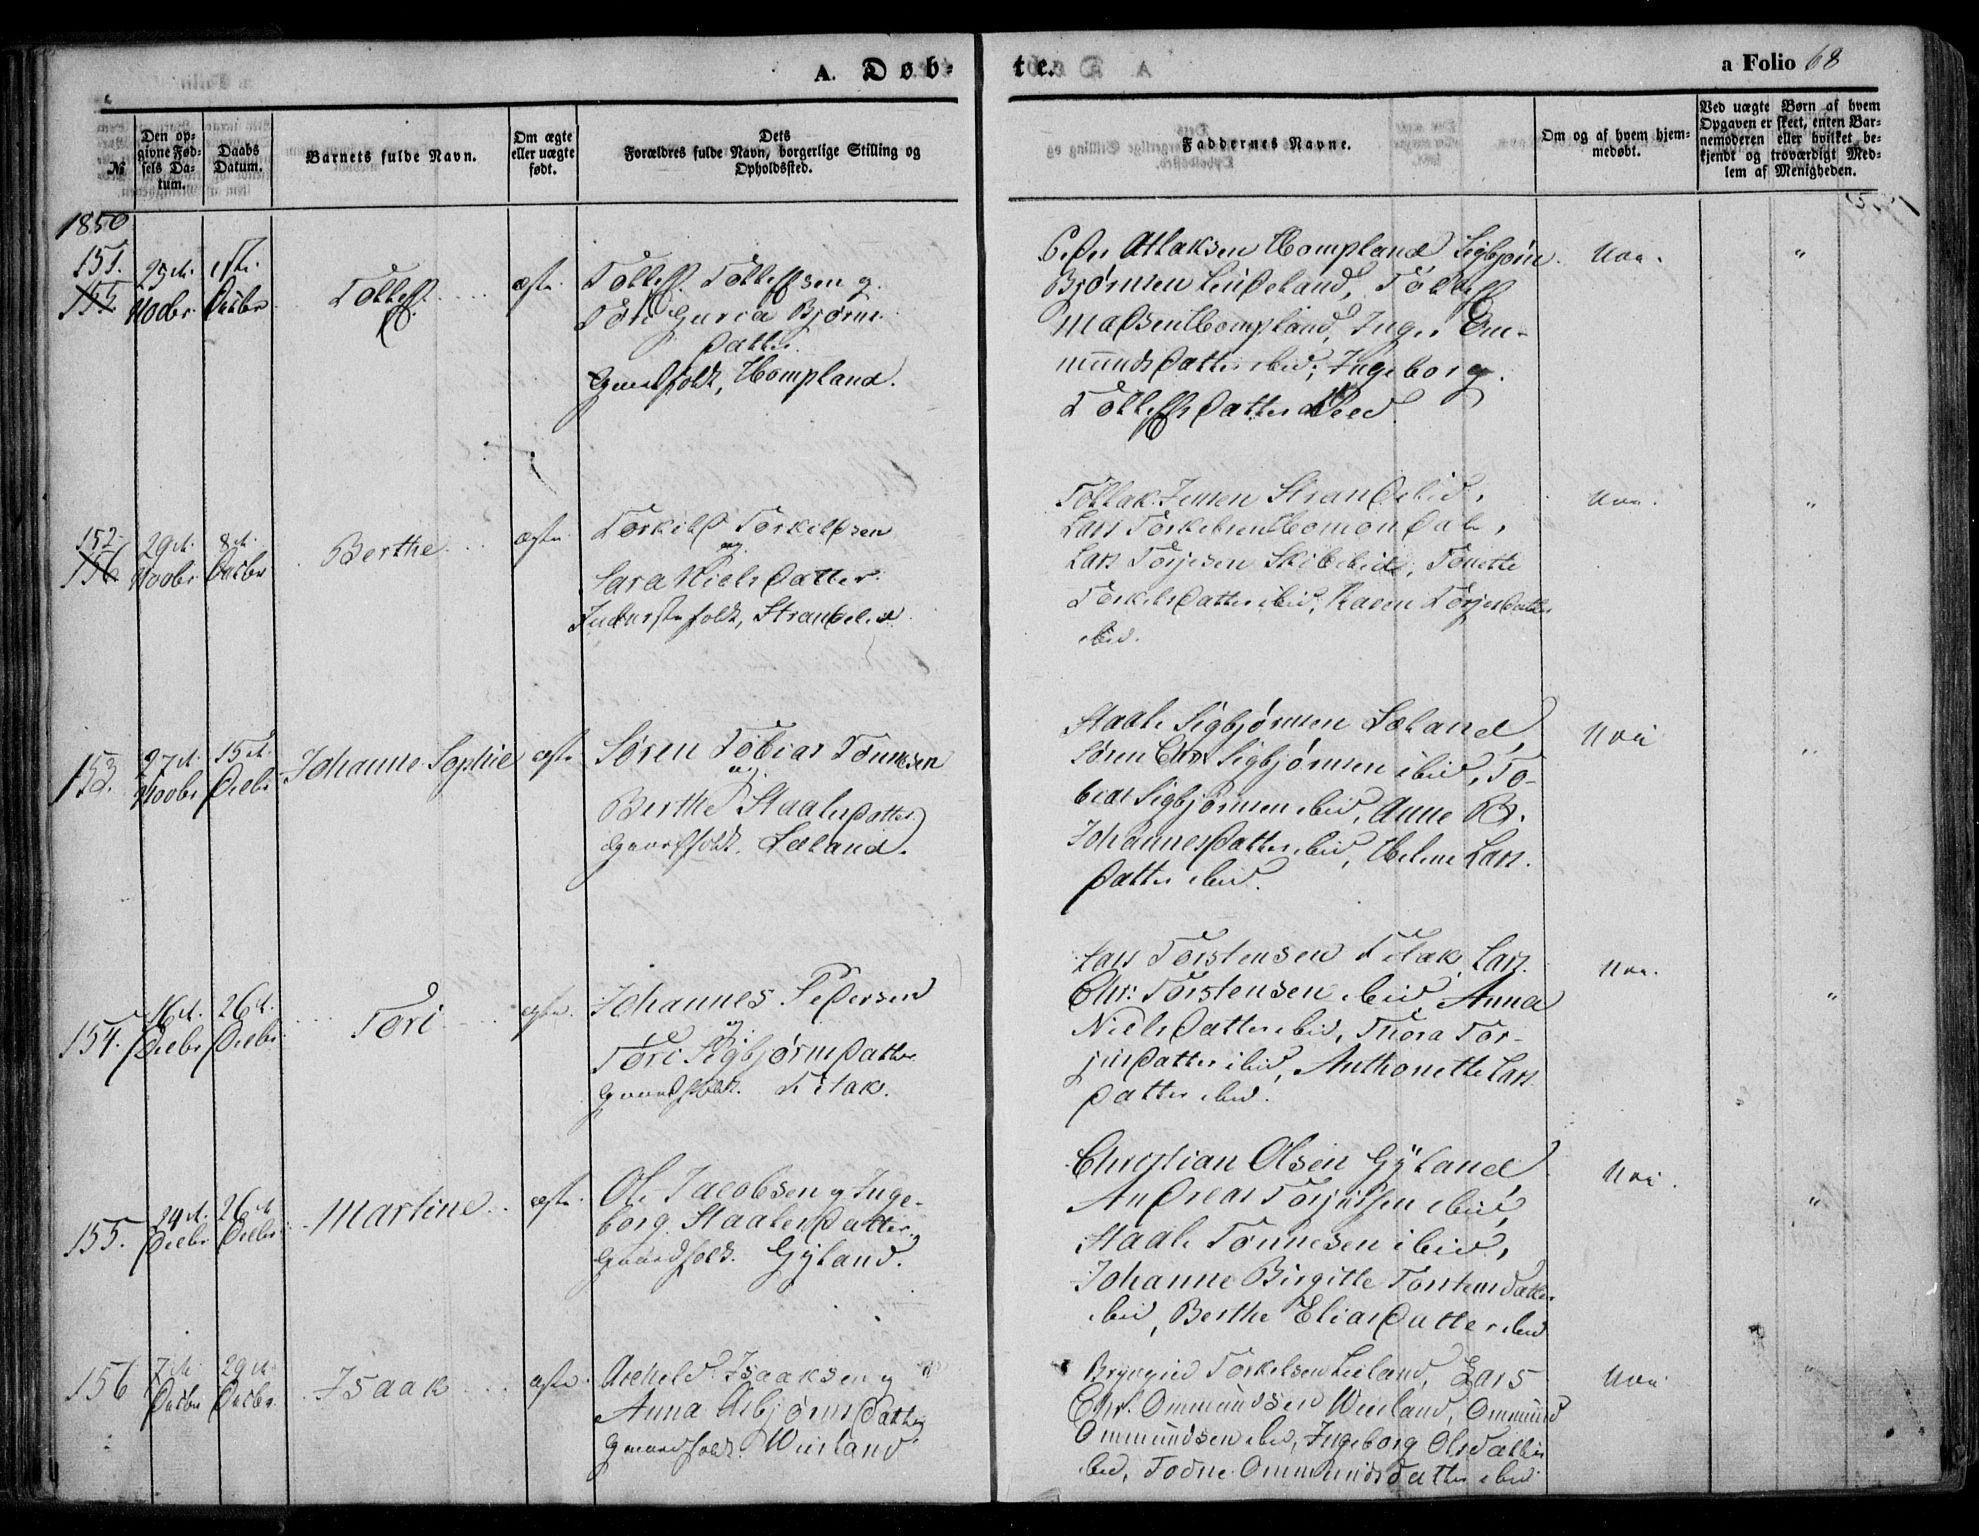 A. Døb-
te.
a Folio 68
№
Den op-
givne Fød-
sels Da-
tum.
Daabs
Datum.
Barnets fulde Navn.
Om ægte
eller uægte
født.
Dets
Forældres fulde Navn, borgerlige Stilling og
Opholdssted.
Faddernes Navne.
Om og af hvem hjem-
medøbt.
Ved uægte Børn af hvem
Opgaven er skeet, enten Bar-
nemoderen eller hvilket be-
kjendt og troværdigt Med-
lem af Menigheden.
1850
151.
155
25de
Novbr
1ste
Decbr
Tolleff
ægte
Tolleff Tolleffsen og
Tori Guria Bjørns
datter
Gaardfolk, Hompland.
Peder Atlaksen Hompland Sigbjørn
Bjørnsen Lindeland, Tolleff
Madsen Hompland, Inger Om-
mundsdatter ibid, Ingeborg
Tolleffsdatter
"
152
156
29de
Novbr
8de
Decbr
Berthe
ægte
Torkild Torkildsen
og
Sara Nielsdatter
Inderstefolk, Strandelid
Tollak Jensen Strandelid,
Lars Torkelsen Homondal,
Lars Torjesen Skibelid, Tonette
Torkelsdatter ibid, Karen Torjesdatter
ibid.
"
153.
27de
Novbr
15de
Decbr
Johanne Sophie
ægte
Søren Tobias Tønnesen
og
Berthe Staalesdatter
Gaardfolk. Læland.
Staale Sigbjørnsen Læland,
Søren Chr. Sigbjørnsen ibid, To-
bias Sigbjørnsen ibid, Anne B.
Johannesdatter ibid, Helene Lars-
datter ibid.
"
154.
16de
Decbr
26de
Decbr
Tori
ægte
Johannes Pedersen
og
Tori Sigbjørnsdatter
Gaardfolk. Titak.
Lars Torstensen Titak, Lars
Chr: Torstensen ibid, Anna
Nielsdatter ibid, Thora Tor-
jusdatter ibid, Anthonette Lars
datter ibid.
"
155.
24de
Decbr
26de
Decbr
Martine
ægte
Ole Jacobsen og Inge-
borg Staalesdatter
Gaardfolk. Gyland.
Christian Olsen Gyland,
Andreas Torjussen ibid,
Staale Tønnesen ibid,
Johanne Birgitte Torstensdatter
ibid, Berthe Eliasdatter ibid
"
156
7de
Decbr
29de
Decbr
Isaak
ægte
Isaaksen og
Anna Asbjørnsdatter
Gaardfolk
Torkelsen Leland, Lars
Chr. Ommundsen, Ommund
Ommundsen ibid, Ingeborg Olsdatter
ibid, Todne Ommundsdatter ibid
"